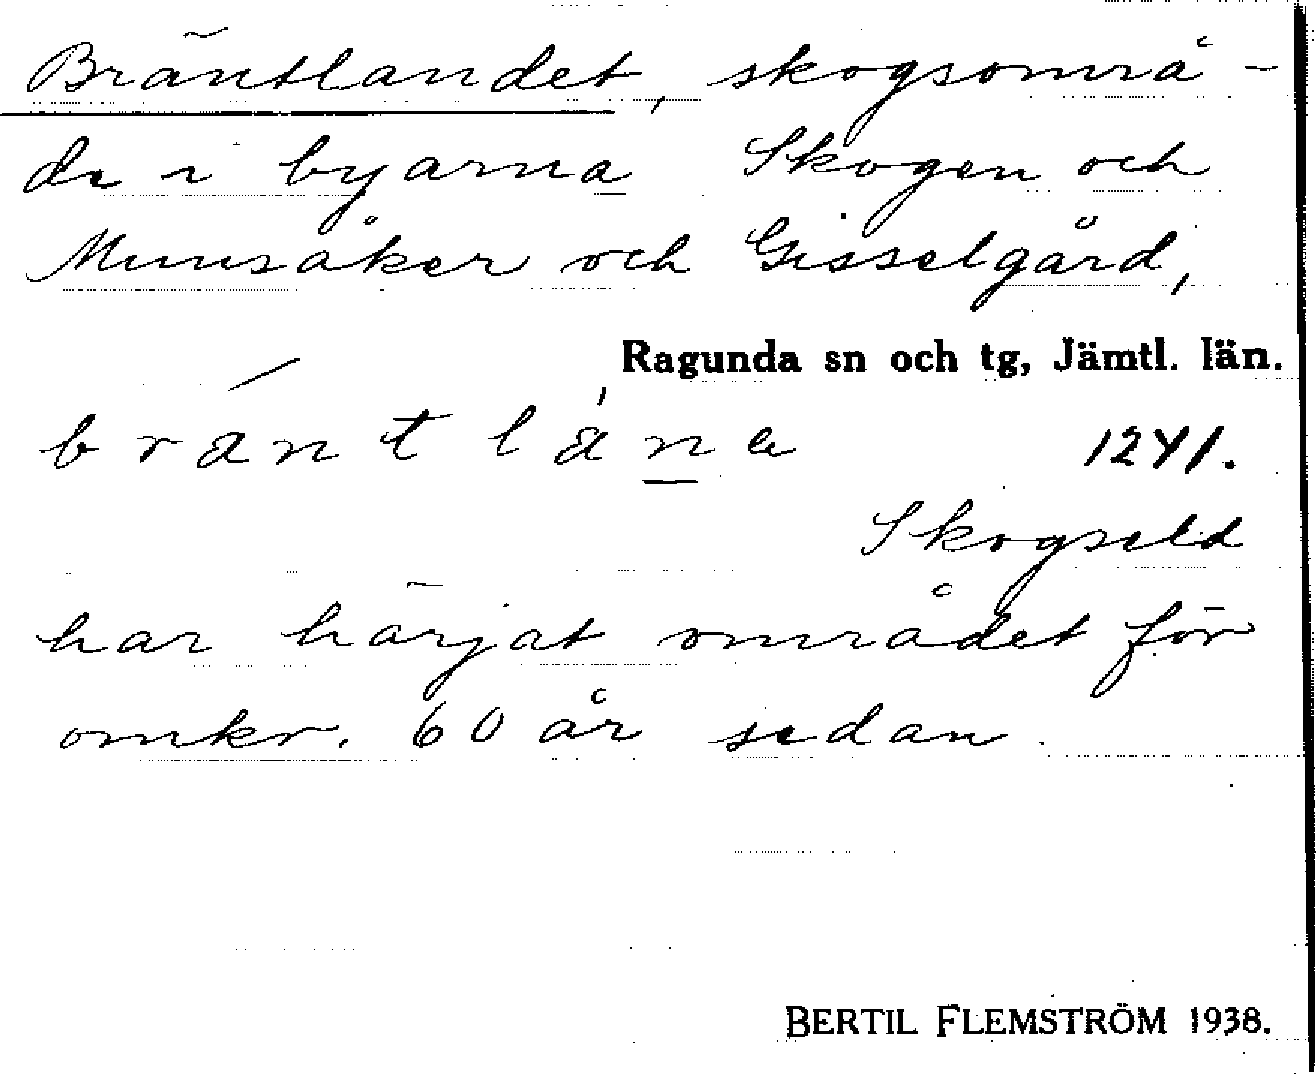 Bräntlandet, skogsområ-
de i byarna Skogen och
Munsåker och Gisselgård,
Ragunda sn och tg, Jämtl. län.
1241.
Skogseld
har härjat området för
omkr. 60 år sedan.
BERTIL FLEMSTRÖM 1938.